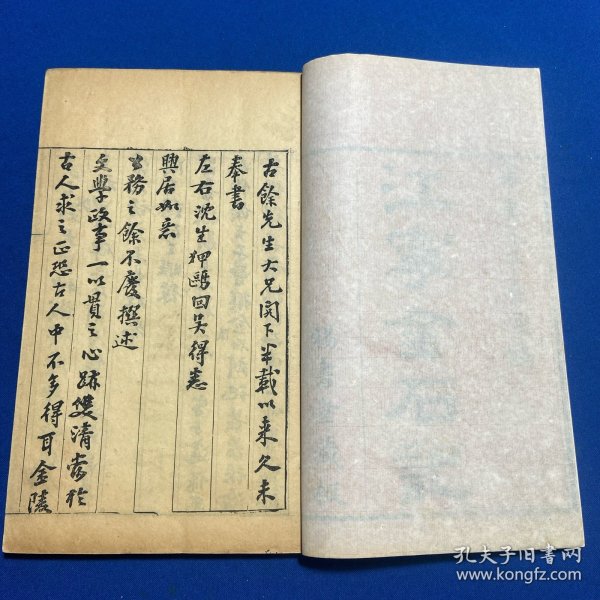 古餘先生大兄閣下半載以来久未
奉書
左右沈生狎鷗回吳得悉
興居如意
公務之餘不廢撰述
文學政事一以貫之心跡雙清常於
古人求之正恐古人中不多得耳金陵
孔夫子旧书网
www.kongfz.com